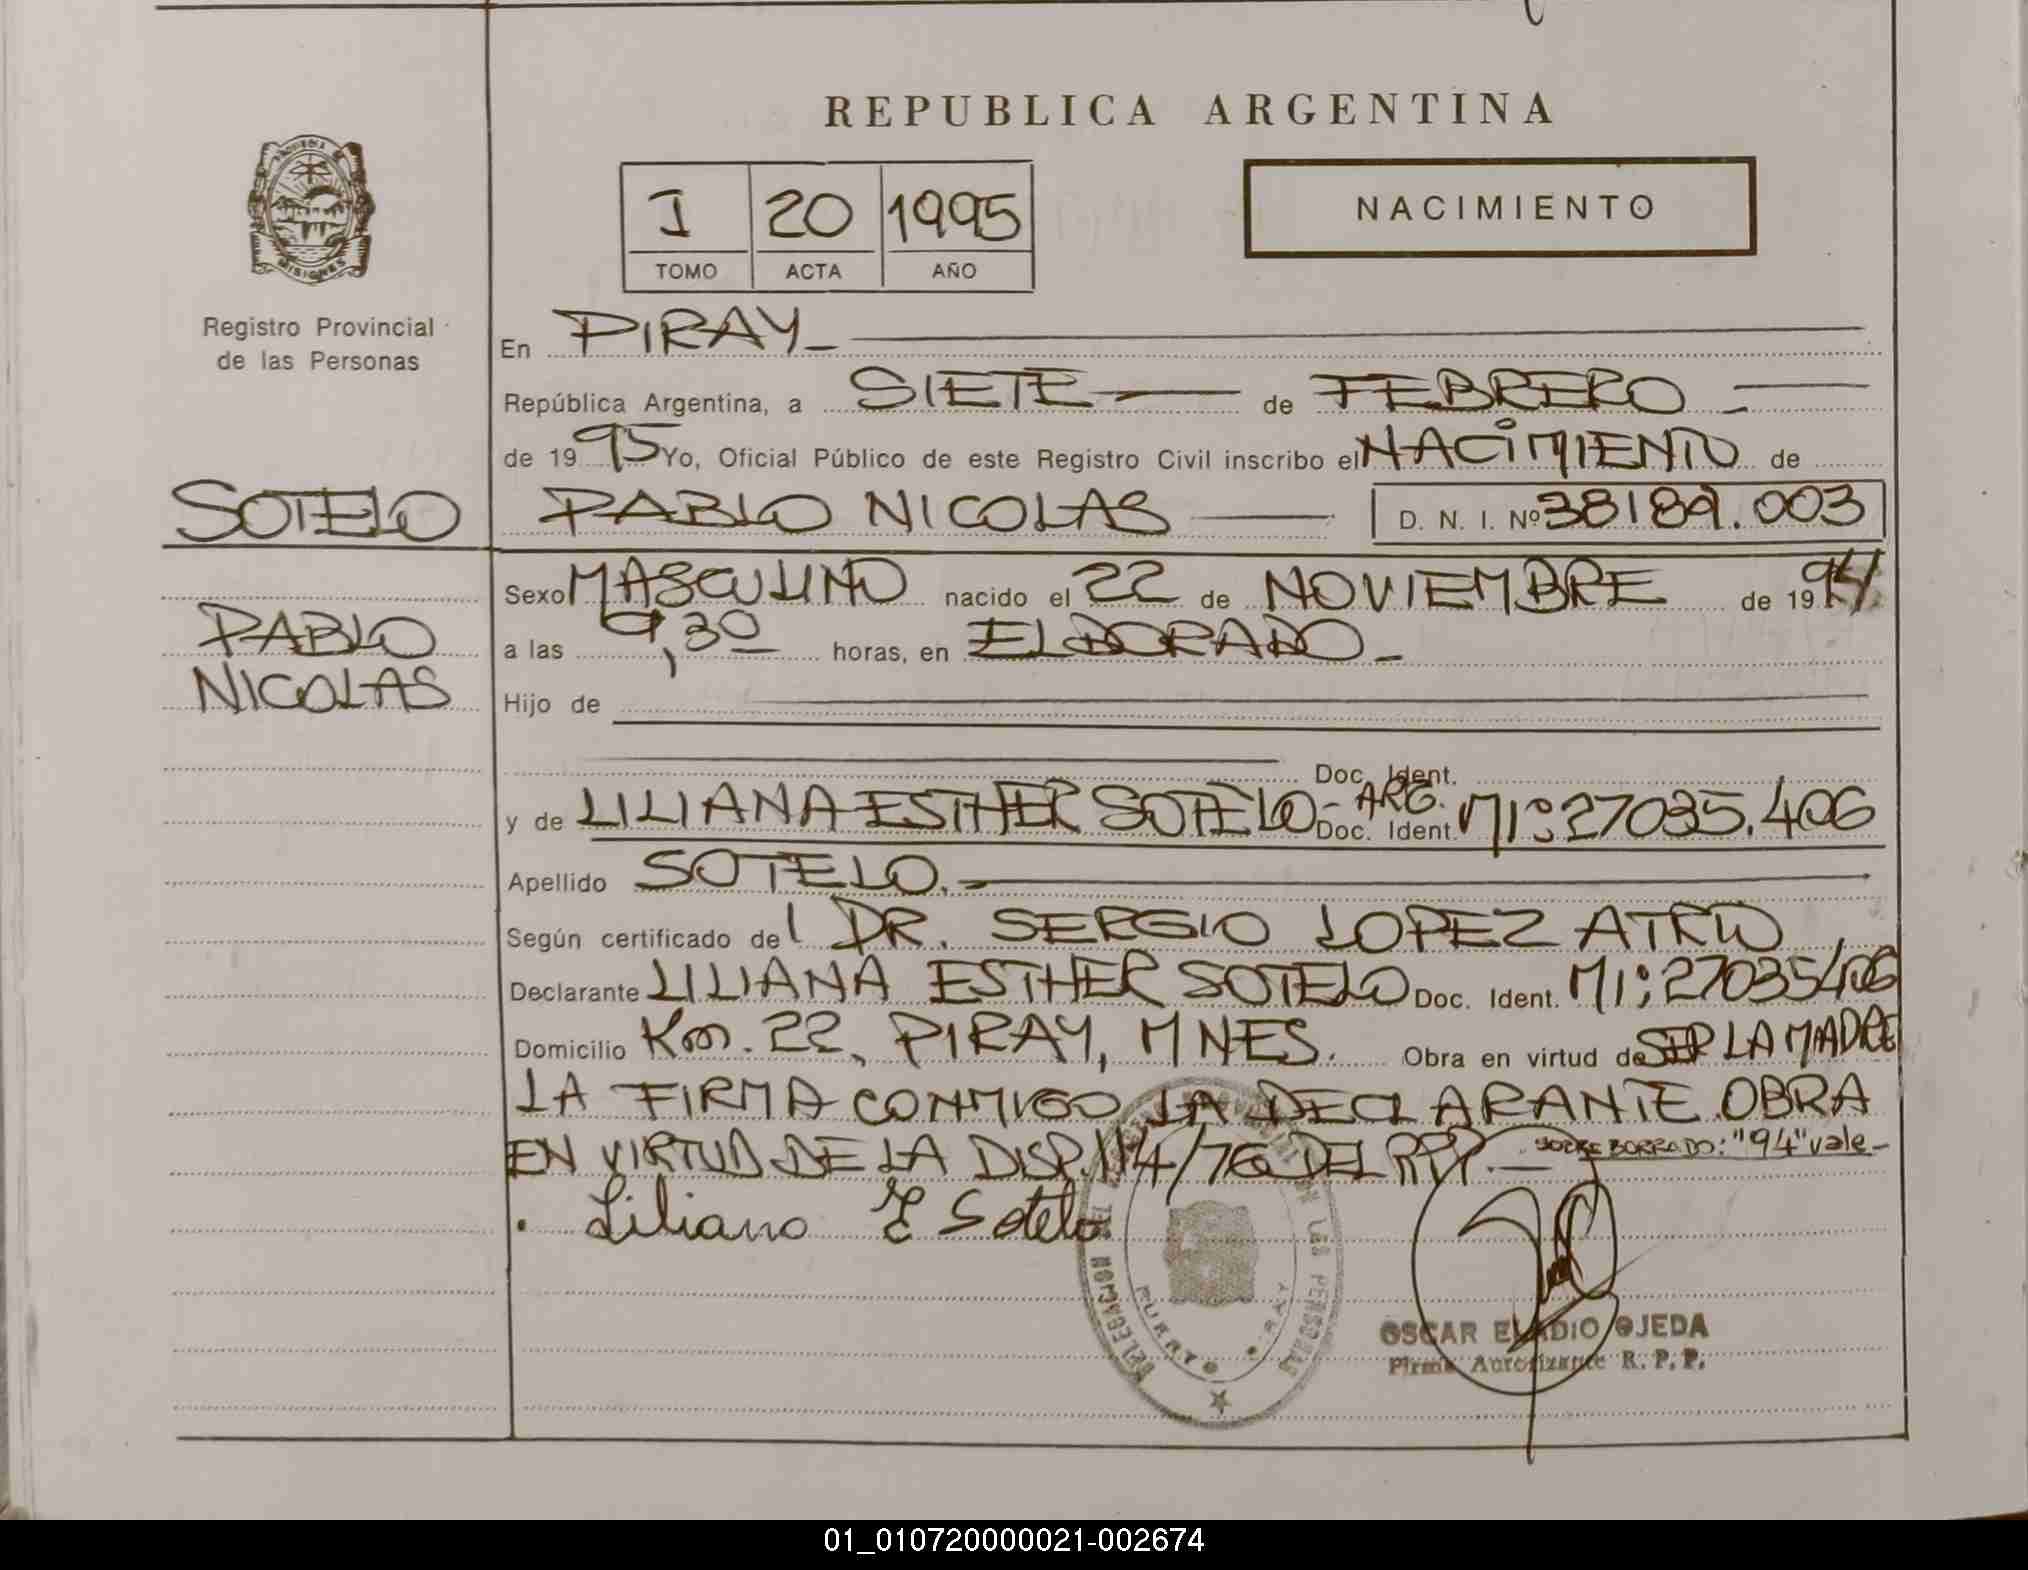 REPUBLICA ARGENTINA
PROVINCIA DE
MISIONES
I 20 1995
TOMO ACTA AÑO
NACIMIENTO
Registro Provincial
de las Personas
En PIRAY
República Argentina, a SIETE de FEBRERO
de 19 95 Yo, Oficial Público de este Registro Civil inscribo el NACIMIENTO de
SOTELO
PABLO NICOLAS D. N. I. Nº 38189.003
PABLO
NICOLAS
Sexo MASCULINO nacido el 22 de NOVIEMBRE de 19 94
a las 9,30 horas, en ELDORADO
Hijo de
Doc. Ident.
y de LILIANA ESTHER SOTELO - ARG. Doc. Ident. MI: 27035.406
Apellido SOTELO.
Según certificado del DR. SERGIO LOPEZ
Declarante LILIANA ESTHER SOTELO Doc. Ident. MI: 27035406
Domicilio Km. 22, PIRAY, MNES. Obra en virtud de SER LA MADRE
LA FIRMA CONMIGO LA DECLARANTE OBRA
EN VIRTUD DE LA DISP. 114/76 DEL RPP. SOBRE BORRADO: "94" vale
Liliana E Sotelo
DELEGACION LAS PERSONAS
PUERTO PIRAY
OSCAR ELADIO OJEDA
Firma Autorizante R. P. P.
01_010720000021-002674